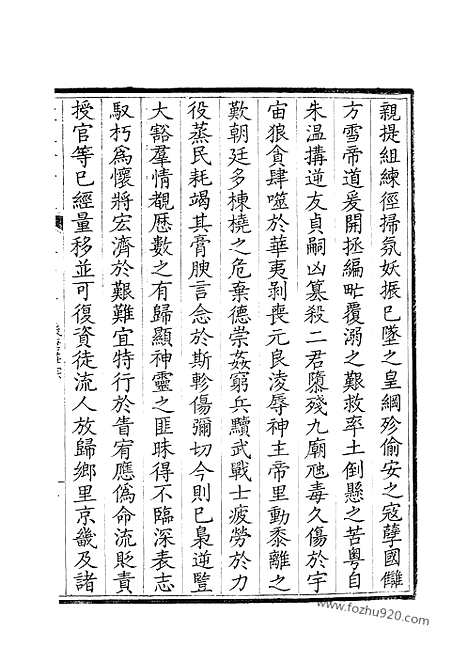 親提組練徑掃氛妖振已墜之皇綱殄偷安之寇孽國讎
方雪帝道爰開拯編甿覆溺之艱救率土倒懸之苦粵自
朱温搆逆友貞嗣凶簒殺二君隳殘九廟虺毒久傷於宇
宙狼貪肆噬於華夷剥喪元良凌辱神主帝里動黍離之
歎朝廷多棟橈之危棄德崇姦窮兵黷武戰士疲勞於力
役蒸民耗竭其膏腴言念於斯軫傷彌切今則已梟逆豎
大豁羣情覩厯數之有歸顯神靈之匪昧得不臨深表志
馭朽為懷將宏濟於艱難宜特行於眚宥應偽命流貶責
授官等已經量移並可復資徒流人放歸鄉里京畿及諸
www.fozhu920.com